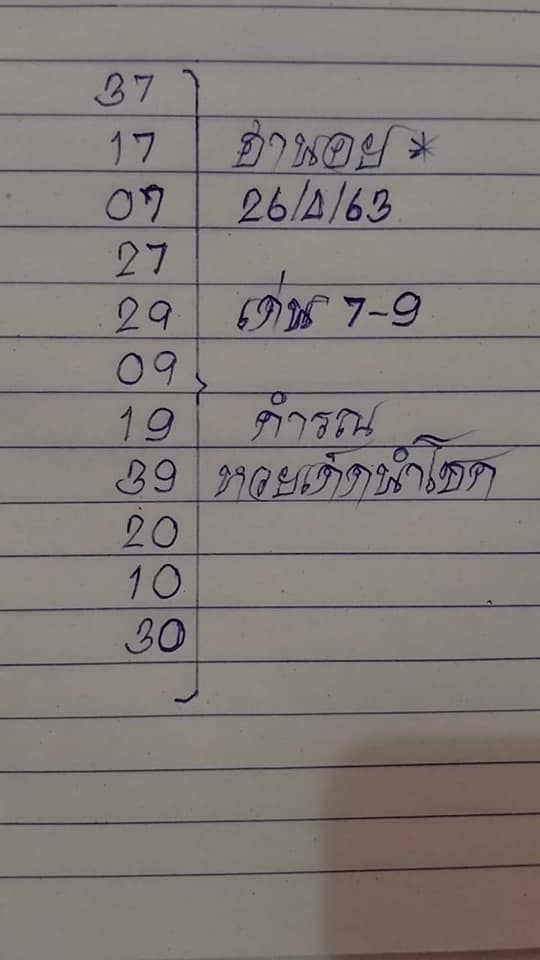 37
17 ฮานอย *
07 26/Δ/63
27
29 เด่น 7-9
09
19 คำรณ
39 หวยเด็ดนำโชค
20
10
30